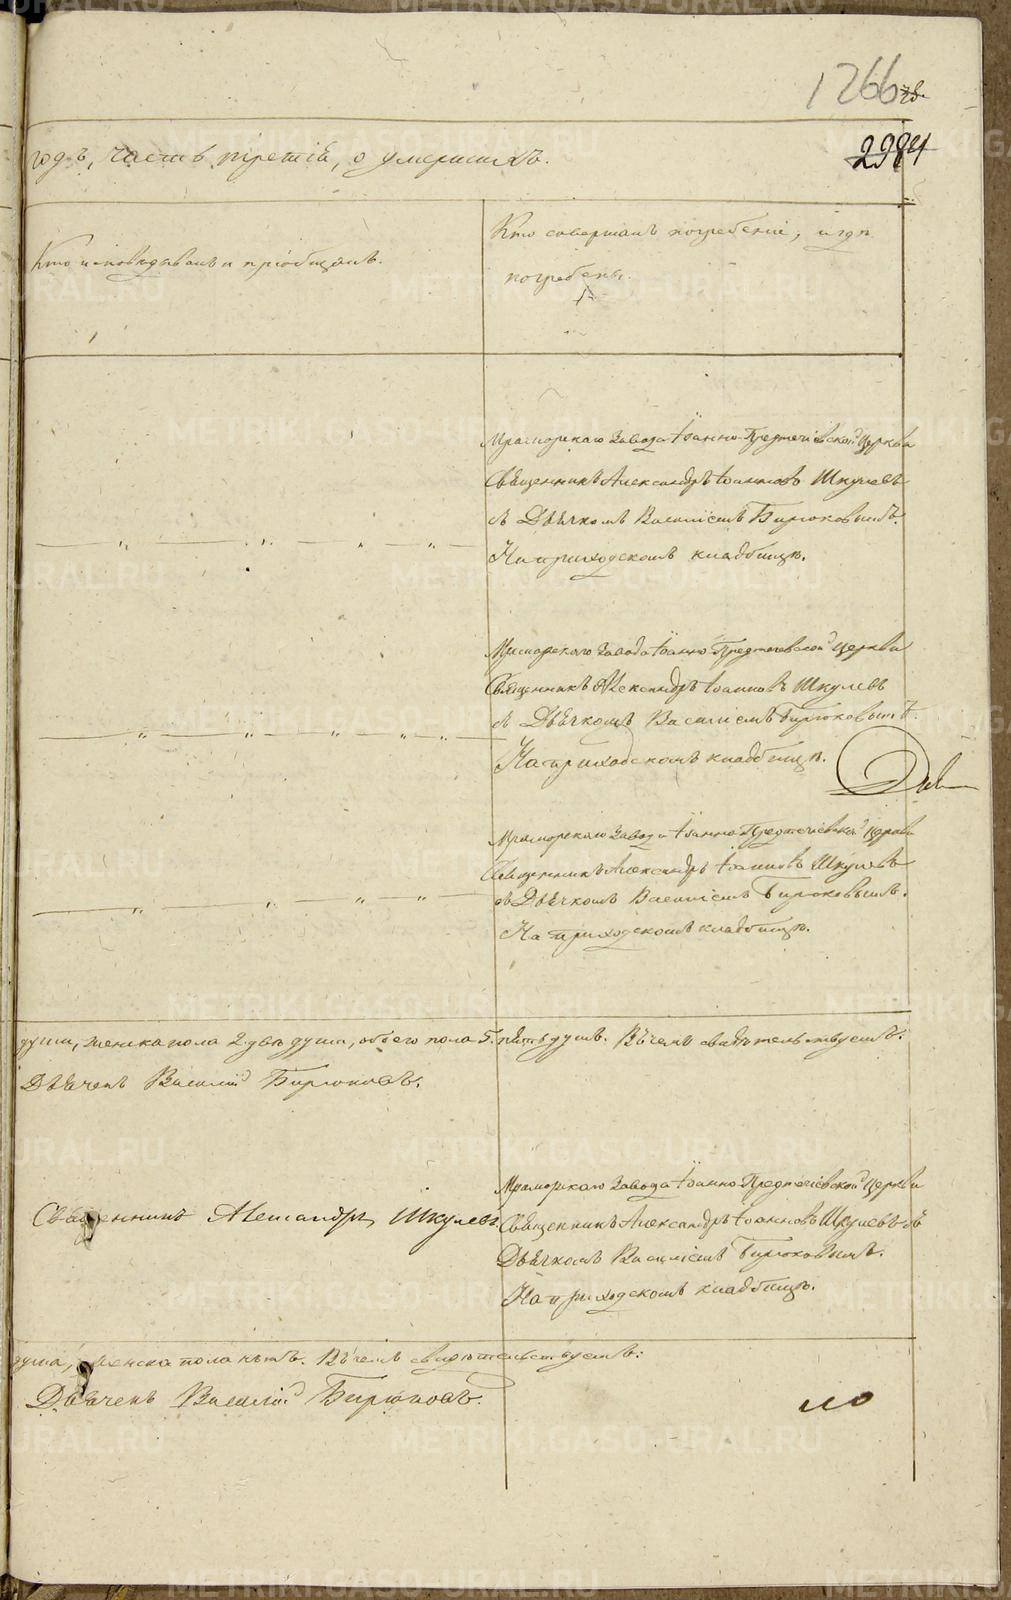 1266
2984
годъ, часть третія, о умершихъ.
Кто исповѣдывалъ и пріобщалъ.
Кто совершалъ погребеніе, и гдѣ
погребены.
Мраморскаго Завода Іоанно-Предтечіевской Церкви
Священникъ Александръ Іоанновъ Шкулевъ
съ Дьячкомъ Василіемъ Бирюковымъ.
На приходскомъ кладбищѣ.
Мраморскаго Завода Іоанно Предтечевской Церкви
Священникъ Александръ Іоанновъ Шкулевъ
съ Дьячкомъ Василіемъ Бирюковымъ.
На приходскомъ кладбищѣ.
Мраморскаго Завода Іоанно Предтечіевской Церкви
Священникъ Александръ Іоанновъ Шкулевъ
съ Дьячкомъ Василіемъ Бирюковымъ.
На приходскомъ кладбищѣ.
души, женска пола 2 двѣ души, обоего пола 5. пять душъ. Въ чемъ свидѣтельствуетъ:
Дьячекъ Василій Бирюковъ.
Священникъ Александръ Шкулевъ
Мраморскаго Завода Іоанно Предтечіевской Церкви
Священникъ Александръ Іоанновъ Шкулевъ съ
Дьячкомъ Василіемъ Бирюковымъ.
На приходскомъ кладбищѣ.
душа, женска пола нѣтъ. Въ чемъ свидѣтельствуетъ:
Дьячекъ Василій Бирюковъ.
METRIKI.GASO-URAL.RU